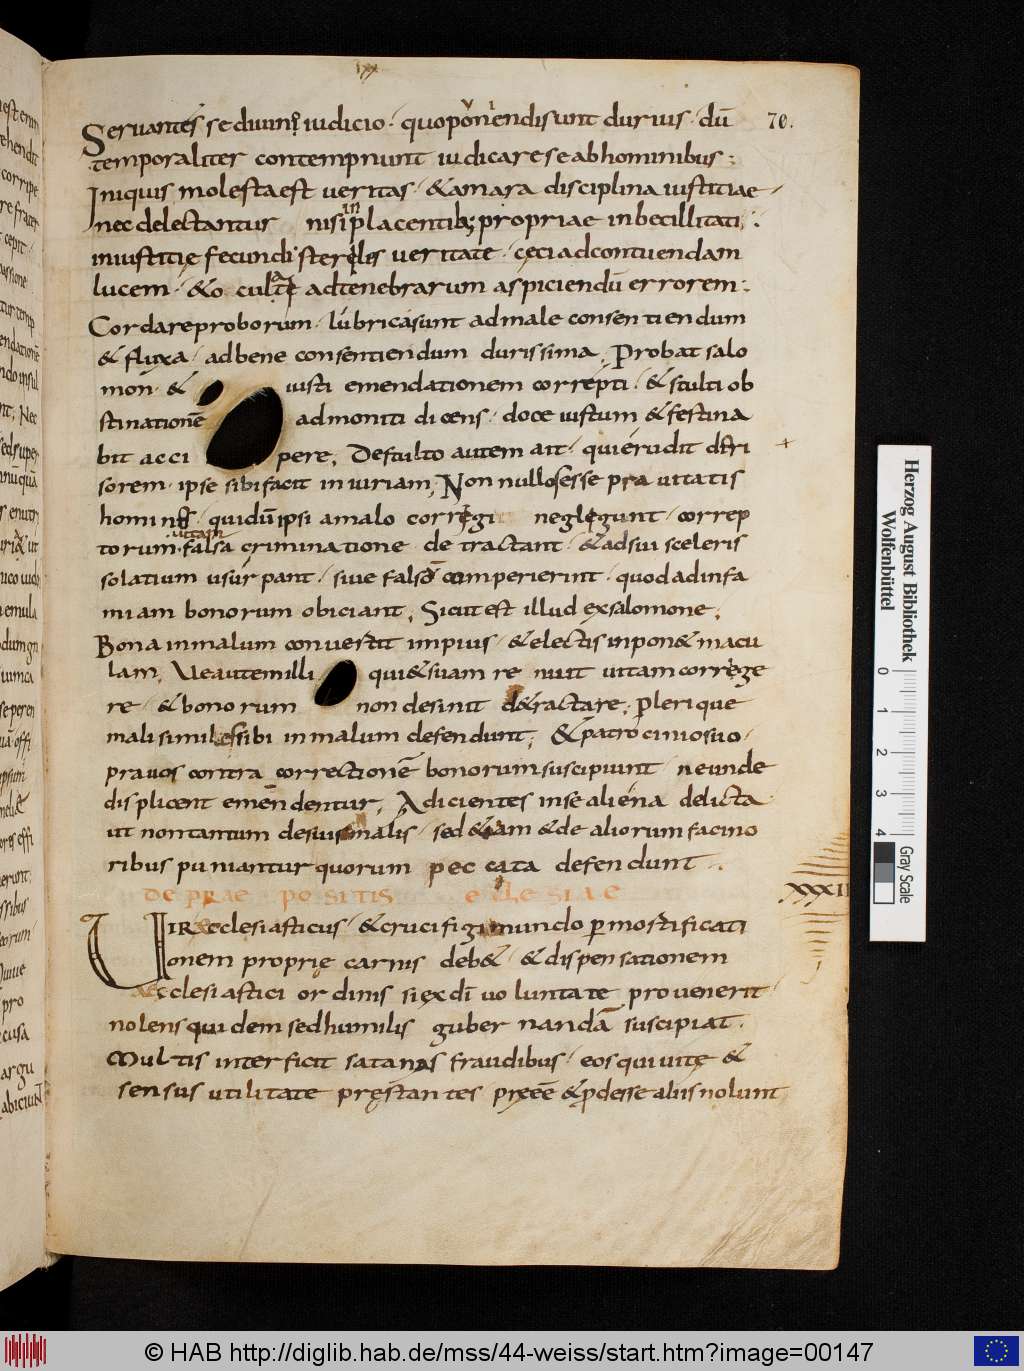 lxx
Seruantes se diuino iudicio · quo ponendi sunt durius · dū 70.
temporaliter contempnunt iudicare se ab hominibus :
Iniquis molesta est ueritas · & amara disciplina iustitiae
nec delectantur nisi in placentib; propriae inbecillitati
iniustitię fecundi steriles ueritate · cęci ad contuendam
lucem · & o culate ad tenebrarum aspiciendū errorem :
Corda reproborum · lubrica sunt ad male consentiendum
& fluxa · ad bene consentiendum durissima . Probat salo
mon · & iusti emendationem correpti · & stulti ob
stinationē admoniti dicens · doce iustum & festina
bit acci pere . De stulto autem ait · qui erudit deri
sorem · ipse sibi facit iniuriam . Non nullos esse prauitatis
homines · quidū ipsi a malo corrigi neglegunt · correp
torum uitam falsa criminatione detractant · & ad sui sceleris
solatium usurpant · siue falso comperierint · quod ad infa
miam bonorum obiciant . Sicut est illud ex salomone .
Bona in malum conuertit impius · & electis inpon& macu
lam . Ue autem illi qui & suam re nuit uitam corrige
re · & bonorum non desinit d&ractare . Plerique
mali similes sibi in malum defendunt . & patrocinio suo
prauos contra correctionē bonorum suscipiunt ne unde
displicent emendentur . Adicientes in se aliena delicta
ut non tantum de suis malis · sed &iam & de aliorum facino
ribus puniantur quorum peccata defendunt .
DE PRAEPOSITIS ECLESIAE XXXII
UIR ecclesiasticus · & crucifigi mundo p mortificati
onem proprię carnis deb& · & dispensationem
aecclesiastici ordinis si ex dī uoluntate prouenerit
nolens quidem sed humilis gubernandā suscipiat .
Multis interficit satanas fraudibus · eos qui uitę &
sensus utilitate pręstantes pręeē & pdesse aliis nolunt
Herzog August Bibliothek
Wolfenbüttel
0 1 2 3 4
Gray Scale
© HAB http://diglib.hab.de/mss/44-weiss/start.htm?image=00147